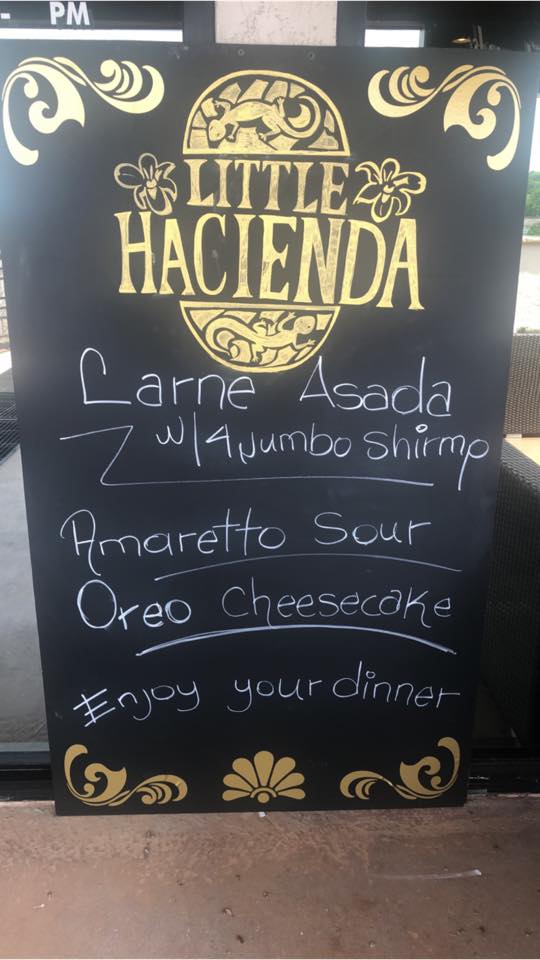 - PM
LITTLE
HACIENDA
Carne Asada
w/4 Jumbo Shirmp
Amaretto Sour
Oreo Cheesecake
Enjoy your dinner